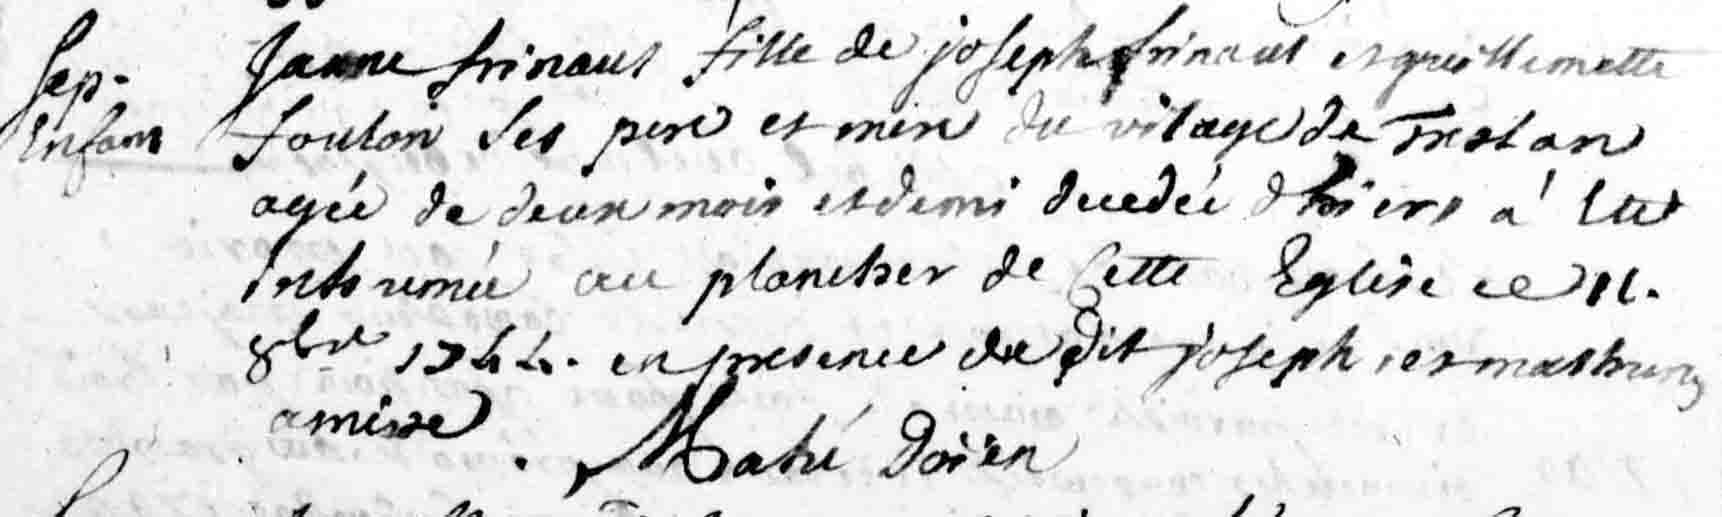 Sep.
Enfant
Janne frinaut fille de joseph frinaut et guillemette
foulon ses pere et mere du vilage de Treslan
agée de deux mois et demi decedée d'hiere a été
inhumée au plancher de Cette Eglise ce 11.
8bre 1744. en presence du dit joseph, et mathurin
amisse
Mahé Doïen